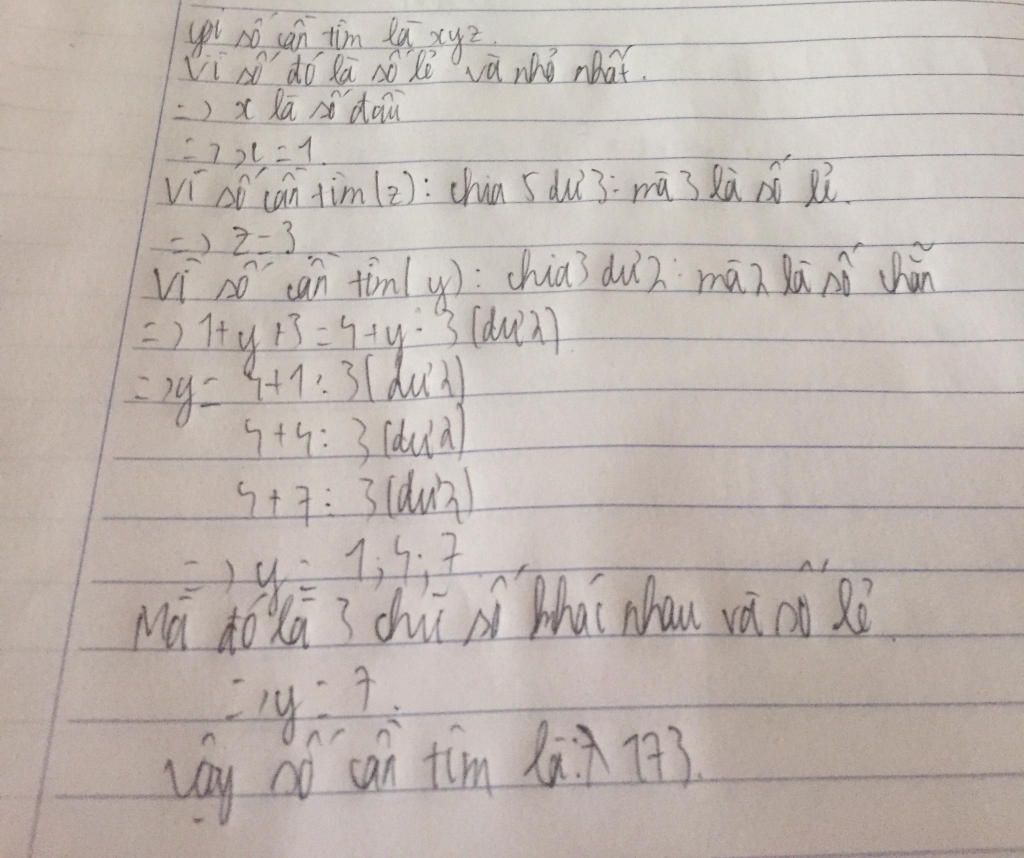 Gọi số cần tìm là xyz.
Vì số đó là số lẻ và nhỏ nhất.
=> x là số đầu
=> x = 1.
Vì số cần tìm (z): chia 5 dư 3: mà 3 là số lẻ.
=> z = 3
Vì số cần tìm (y): chia 3 dư 2: mà 2 là số chẵn
=> 1+y+3 = 4+y : 3 (dư 2)
=> y = 4+1 : 3 (dư 2)
4+4 : 3 (dư 2)
4+7 : 3 (dư 2)
=> y = 1; 4; 7
Mà đó là 3 chữ số khác nhau và số lẻ.
=> y = 7.
Vậy số cần tìm là: 173.